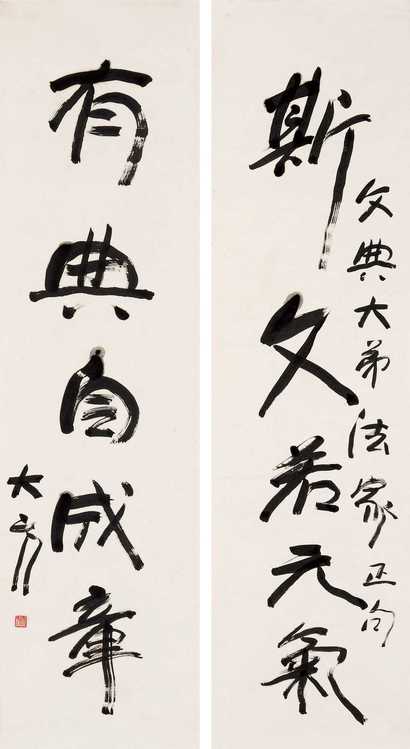 斯文若元氣
文典大弟法家正句
有典自成章
大